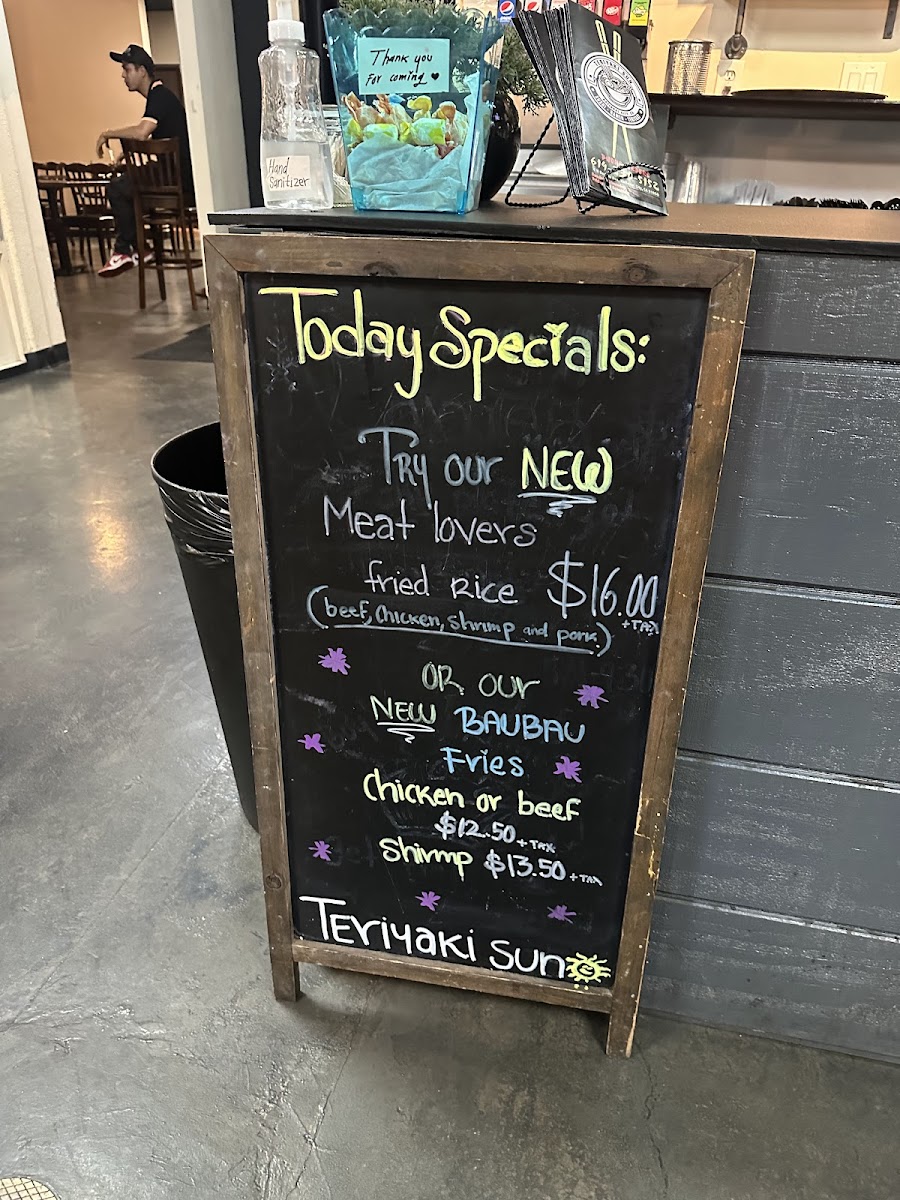 Thank you
For coming ♥
Hand
Sanitizer
Today Specials:
TRY our NEW
Meat lovers
fried Rice $16.00
+TAX
(beef, chicken, shrimp and pork)
OR our
NEW BAUBAU
Fries
Chicken or beef
$12.50 +TAX
Shirmp $13.50 +TAX
TEriyaki sun